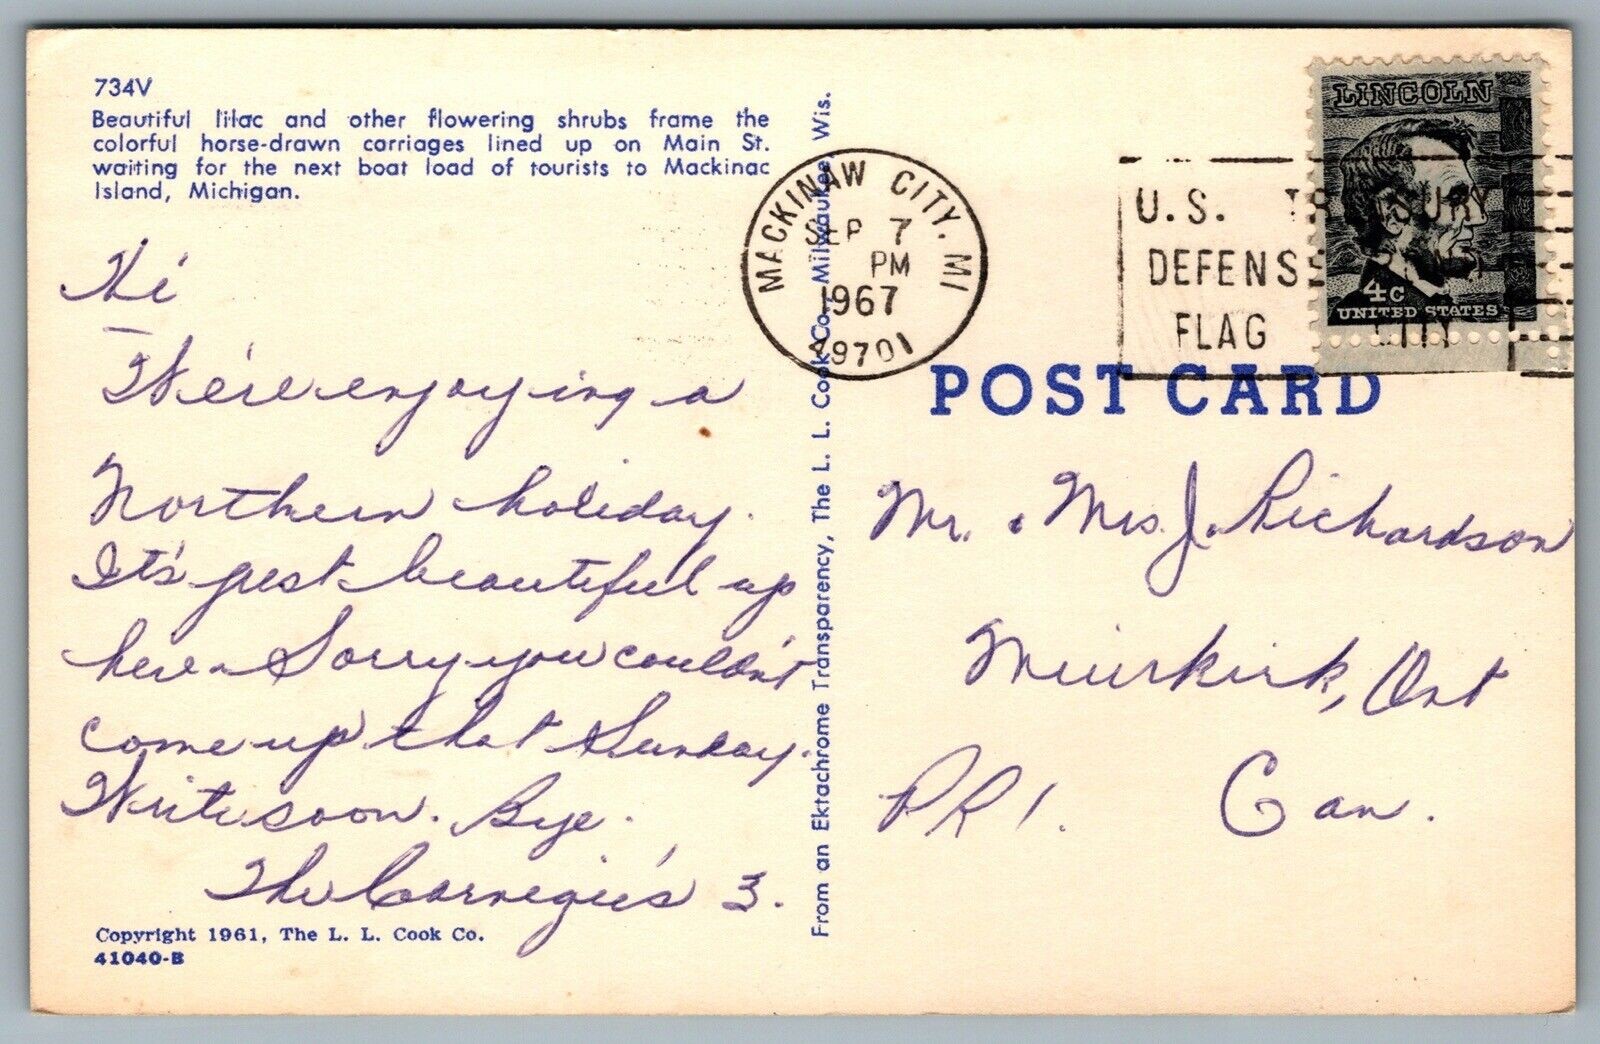 734V
Beautiful lilac and other flowering shrubs frame the
colorful horse-drawn carriages lined up on Main St.
waiting for the next boat load of tourists to Mackinac
Island, Michigan.
Hi
We're enjoying a
Northern holiday.
It's just beautiful up
here. Sorry you couldn't
come up that Sunday.
Write soon. Bye.
The Carnegie's 3.
Copyright 1961, The L. L. Cook Co.
41040-B
From an Ektachrome Transparency, The L. L. Cook Co., Milwaukee, Wis.
MACKINAW CITY, MI
SEP 7
PM
1967
49701
U.S. TREASURY
DEFENSE
FLAG CITY
LINCOLN
4c
UNITED STATES
POST CARD
Mr. & Mrs. J. Richardson
Muirkirk, Ont
RR 1. Can.